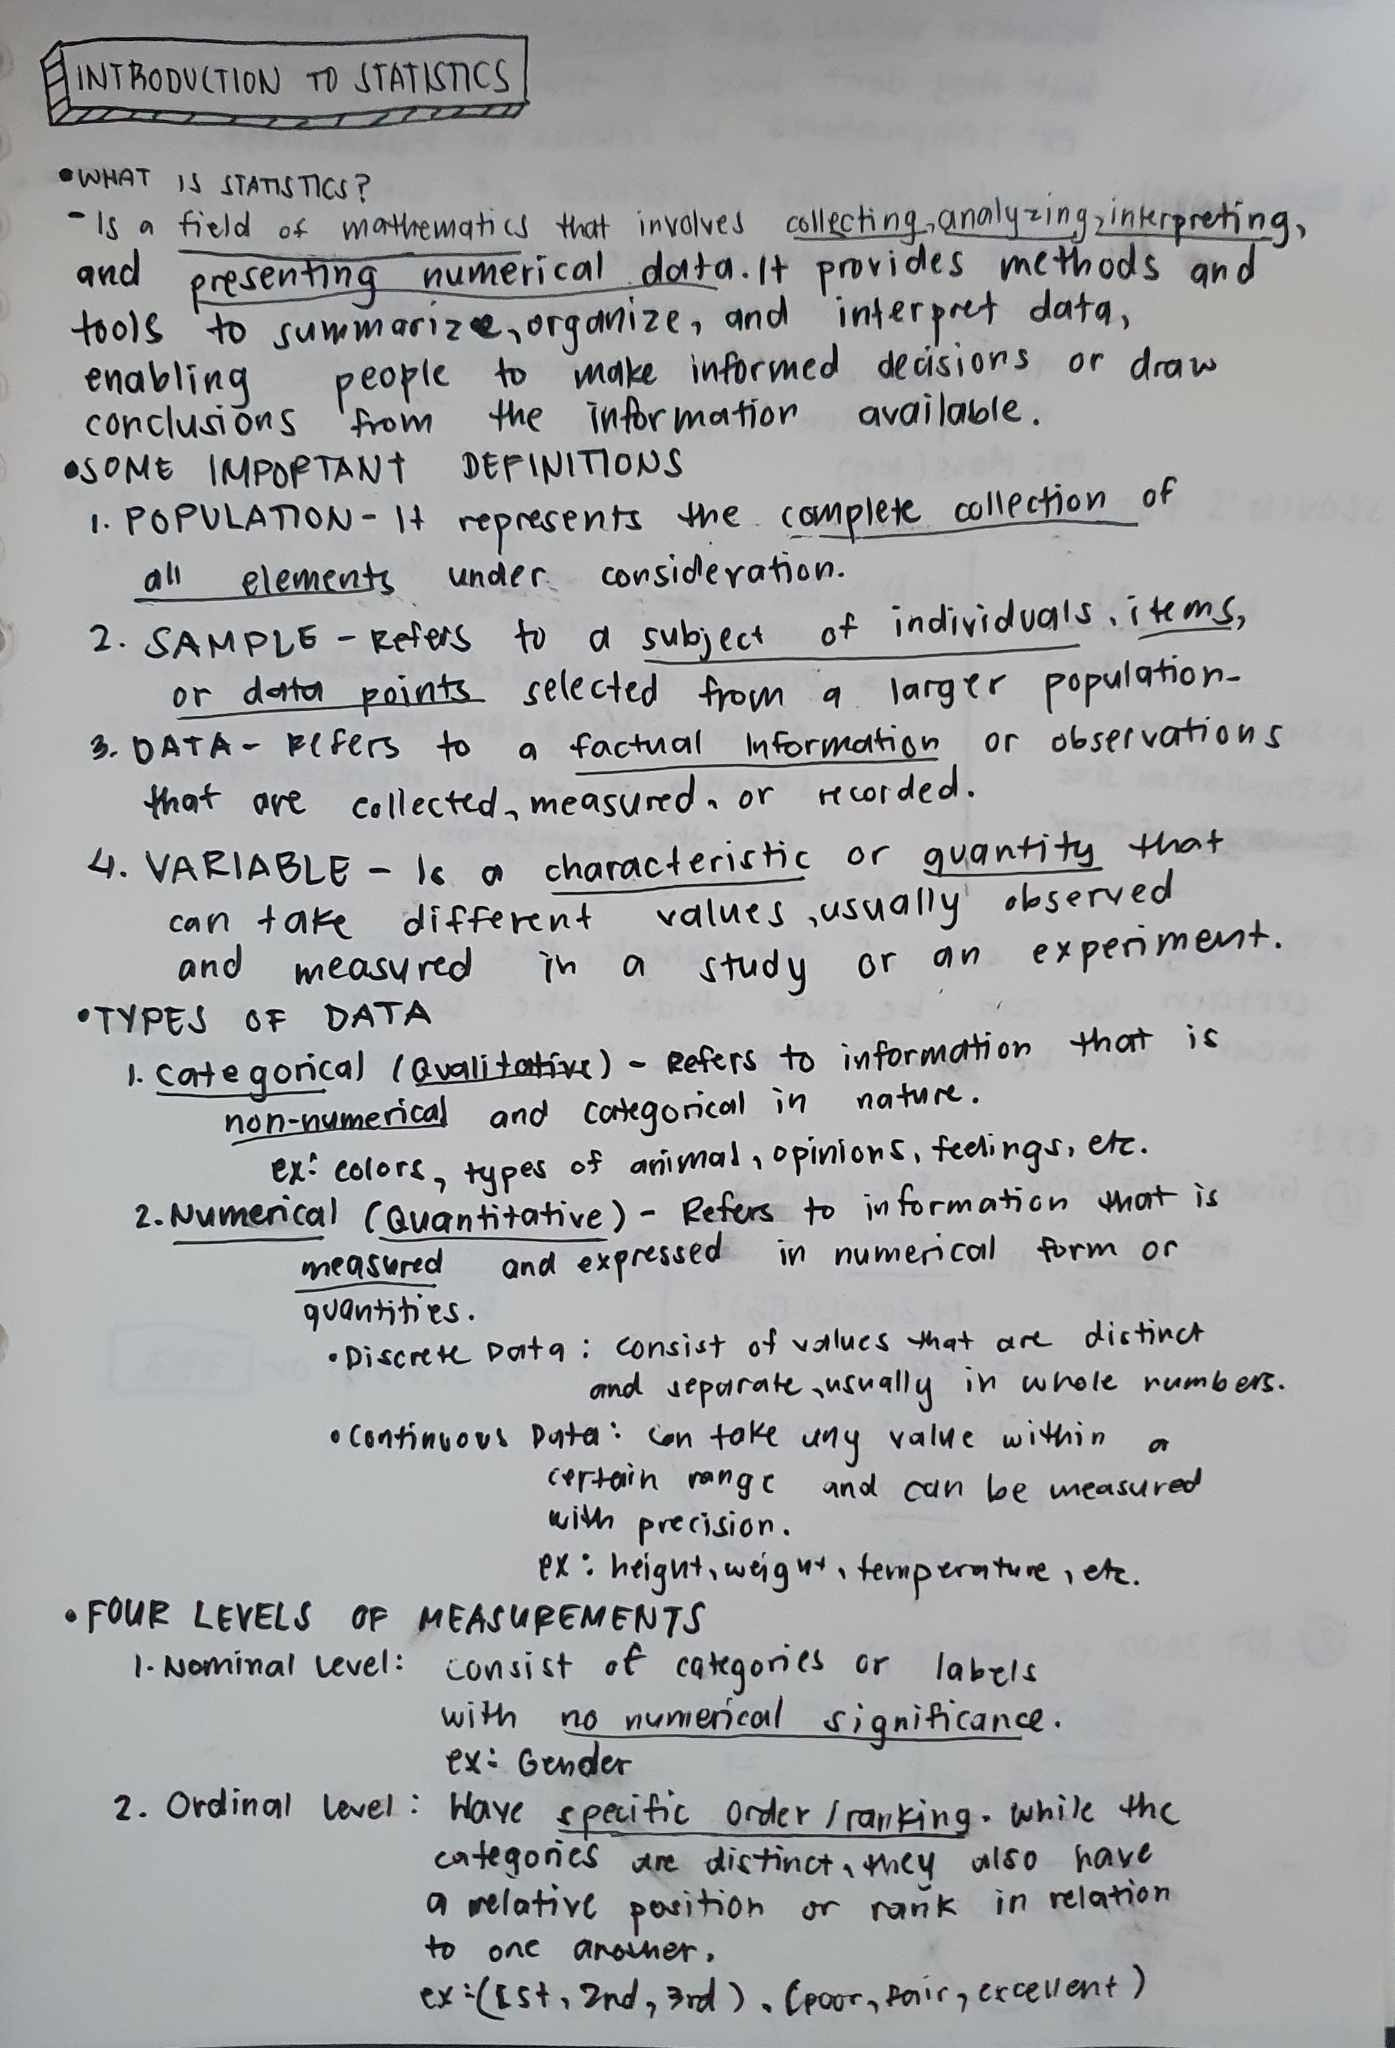 INTRODUCTION TO STATISTICS
•WHAT IS STATISTICS?
- Is a field of mathematics that involves collecting, analyzing, interpreting,
and presenting numerical data. It provides methods and
tools to summarize, organize, and interpret data,
enabling people to make informed decisions or draw
conclusions from the information available.
•SOME IMPORTANT DEFINITIONS
1. POPULATION - It represents the complete collection of
all elements under consideration.
2. SAMPLE - Refers to a subject of individuals, items,
or data points selected from a larger population.
3. DATA - Refers to a factual information or observations
that are collected, measured, or recorded.
4. VARIABLE - Is a characteristic or quantity that
can take different values, usually observed
and measured in a study or an experiment.
•TYPES OF DATA
1. Categorical (Qualitative) - Refers to information that is
non-numerical and categorical in nature.
ex: colors, types of animal, opinions, feelings, etc.
2. Numerical (Quantitative) - Refers to information that is
measured and expressed in numerical form or
quantities.
• Discrete Data: consist of values that are distinct
and separate, usually in whole numbers.
• Continuous Data: can take any value within a
certain range and can be measured
with precision.
ex: height, weight, temperature, etc.
• FOUR LEVELS OF MEASUREMENTS
1. Nominal Level: consist of categories or labels
with no numerical significance.
ex: Gender
2. Ordinal Level: Have specific order / ranking. While the
categories are distinct, they also have
a relative position or rank in relation
to one another.
ex: (1st, 2nd, 3rd), (poor, fair, excellent)